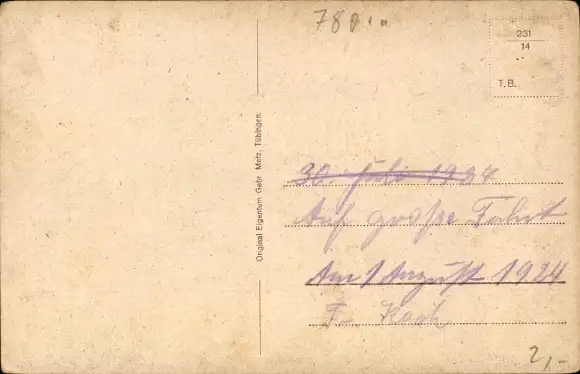 780
231
14
T. B.
Original Eigentum Gebr. Metz, Tübingen.
30. Juli 1924
Auf große Fahrt
Am 1 August 1924
2,-